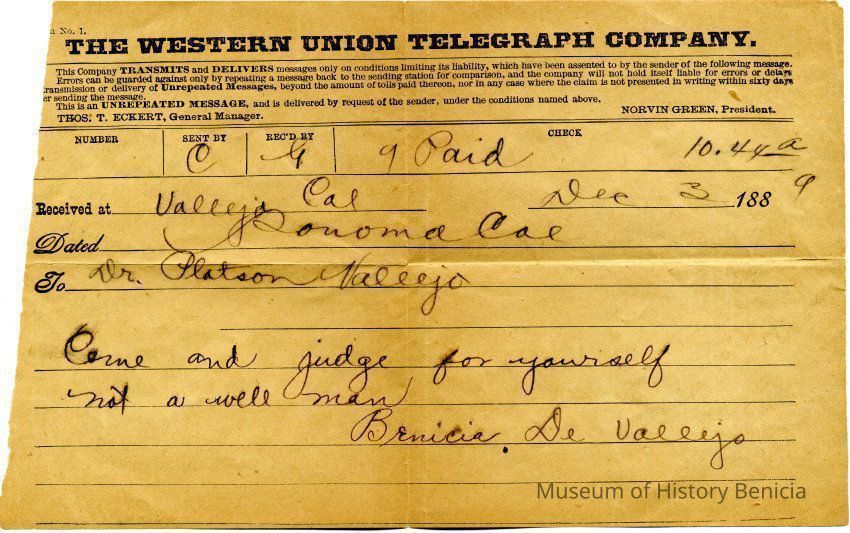 No. 1.
THE WESTERN UNION TELEGRAPH COMPANY.
This Company TRANSMITS and DELIVERS messages only on conditions limiting its liability, which have been assented to by the sender of the following message.
Errors can be guarded against only by repeating a message back to the sending station for comparison, and the company will not hold itself liable for errors or delays
ransmission or delivery of Unrepeated Messages, beyond the amount of tolls paid thereon, nor in any case where the claim is not presented in writing within sixty days
er sending the message.
This is an UNREPEATED MESSAGE, and is delivered by request of the sender, under the conditions named above.
THOS. T. ECKERT, General Manager. NORVIN GREEN, President.
NUMBER SENT BY REC'D BY CHECK
C G 9 Paid 10.44 a
Received at Vallejo Cal Dec 3 1889
Dated Sonoma Cal
To Dr. Platson Vallejo
Come and judge for yourself
not a well man
Benicia De Vallejo
Museum of History Benicia